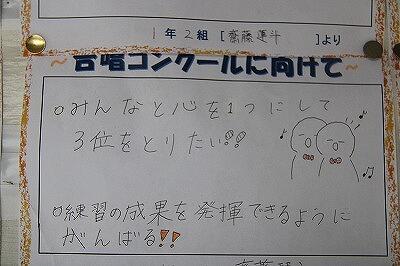 1年2組 [齋藤蓮斗 ]より
~合唱コンクールに向けて~
○みんなと心を1つにして
3位をとりたい!!
○練習の成果を発揮できるように
がんばる!!